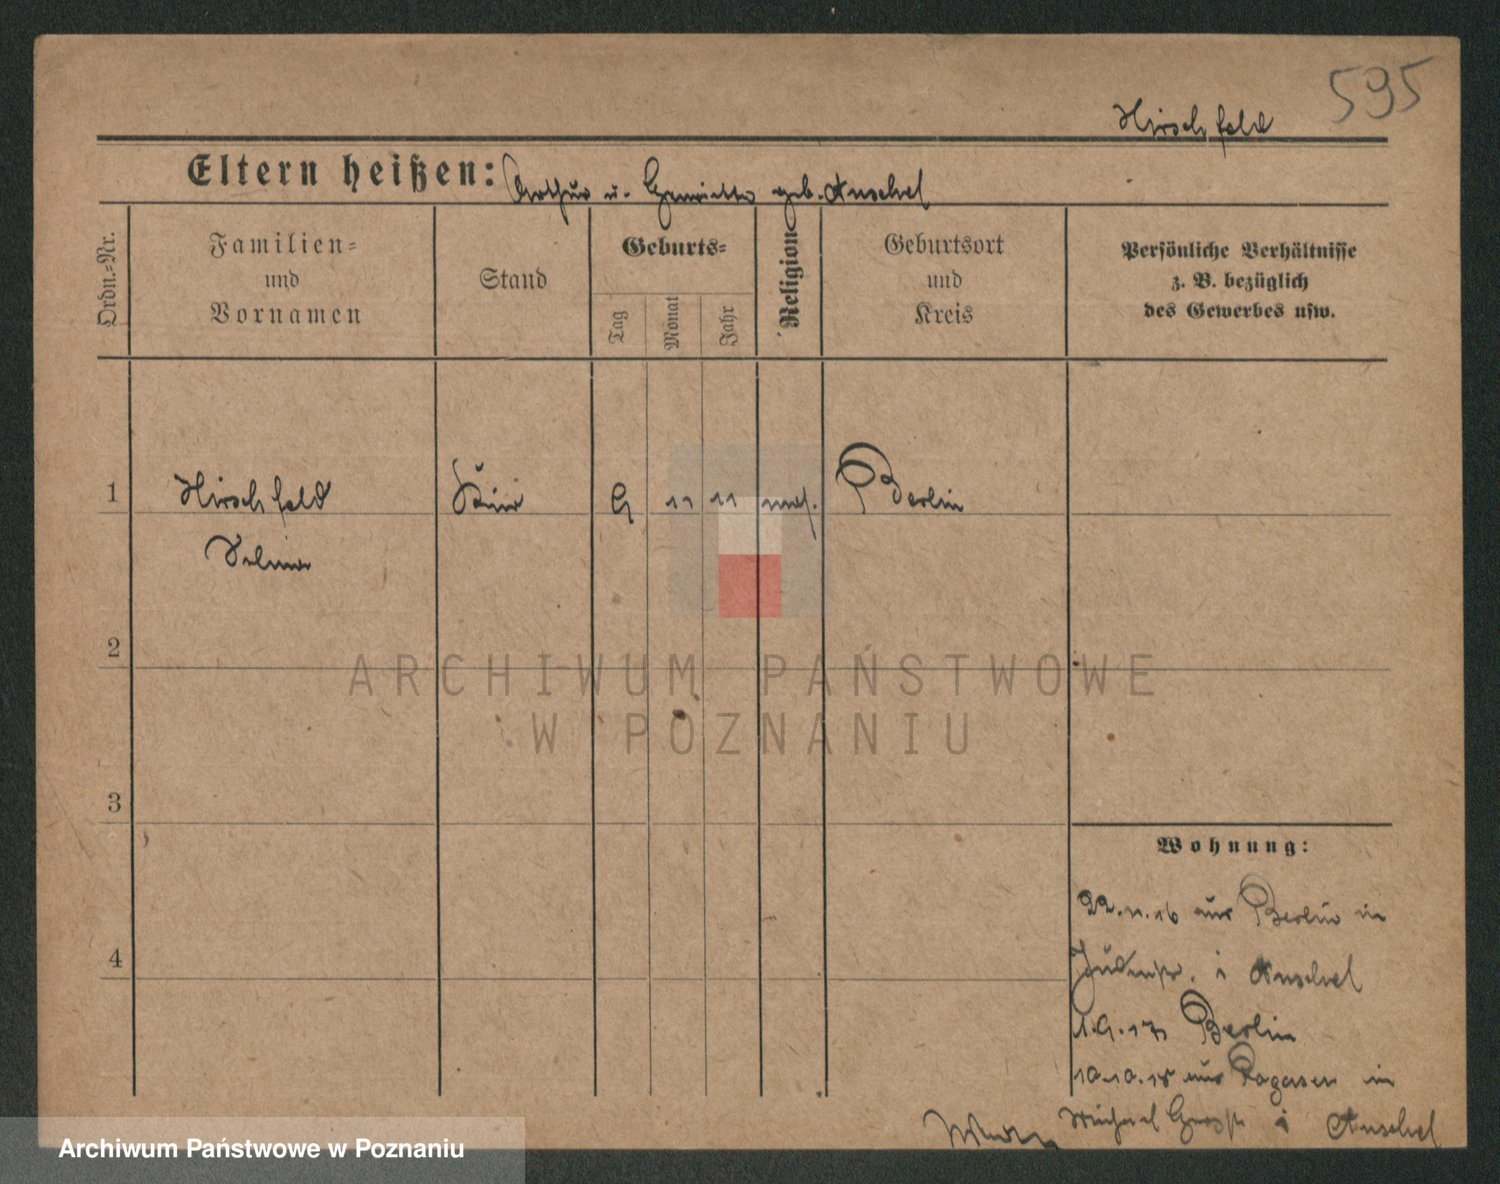 595
Hirschfeld
Eltern heißen: Arthur u. Henriette geb. Anschel
Ordn.=Nr.
Familien=
und
Vornamen
Stand
Geburts=
Tag
Monat
Jahr
Religion
Geburtsort
und
Kreis
Persönliche Verhältnisse
z. B. bezüglich
des Gewerbes usw.
1
Hirschfeld
Selma
9 11 11 mos. Berlin
2
ARCHIWUM PAŃSTWOWE
W POZNANIU
3
Wohnung:
22.11.16 aus Berlin in
Judenstr. i Anschel
1.9.17 Berlin
4
10.10.18 aus Rogasen in
Anschel
Archiwum Państwowe w Poznaniu